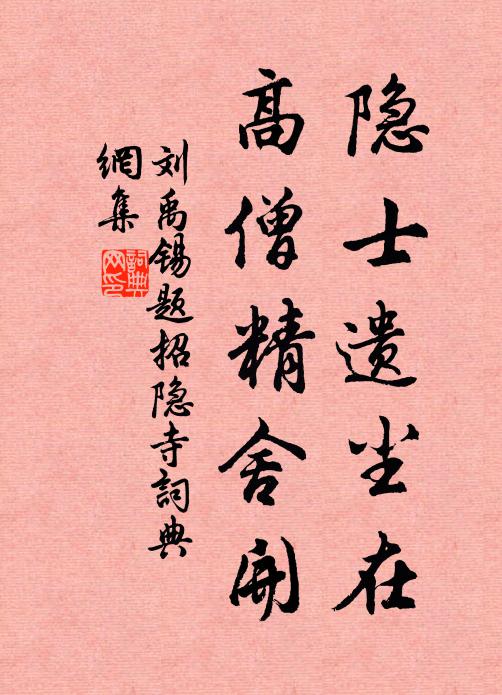 隐士遗尘在
高僧精舍开
刘禹锡题招隐寺詞典
網集
詞典
网印